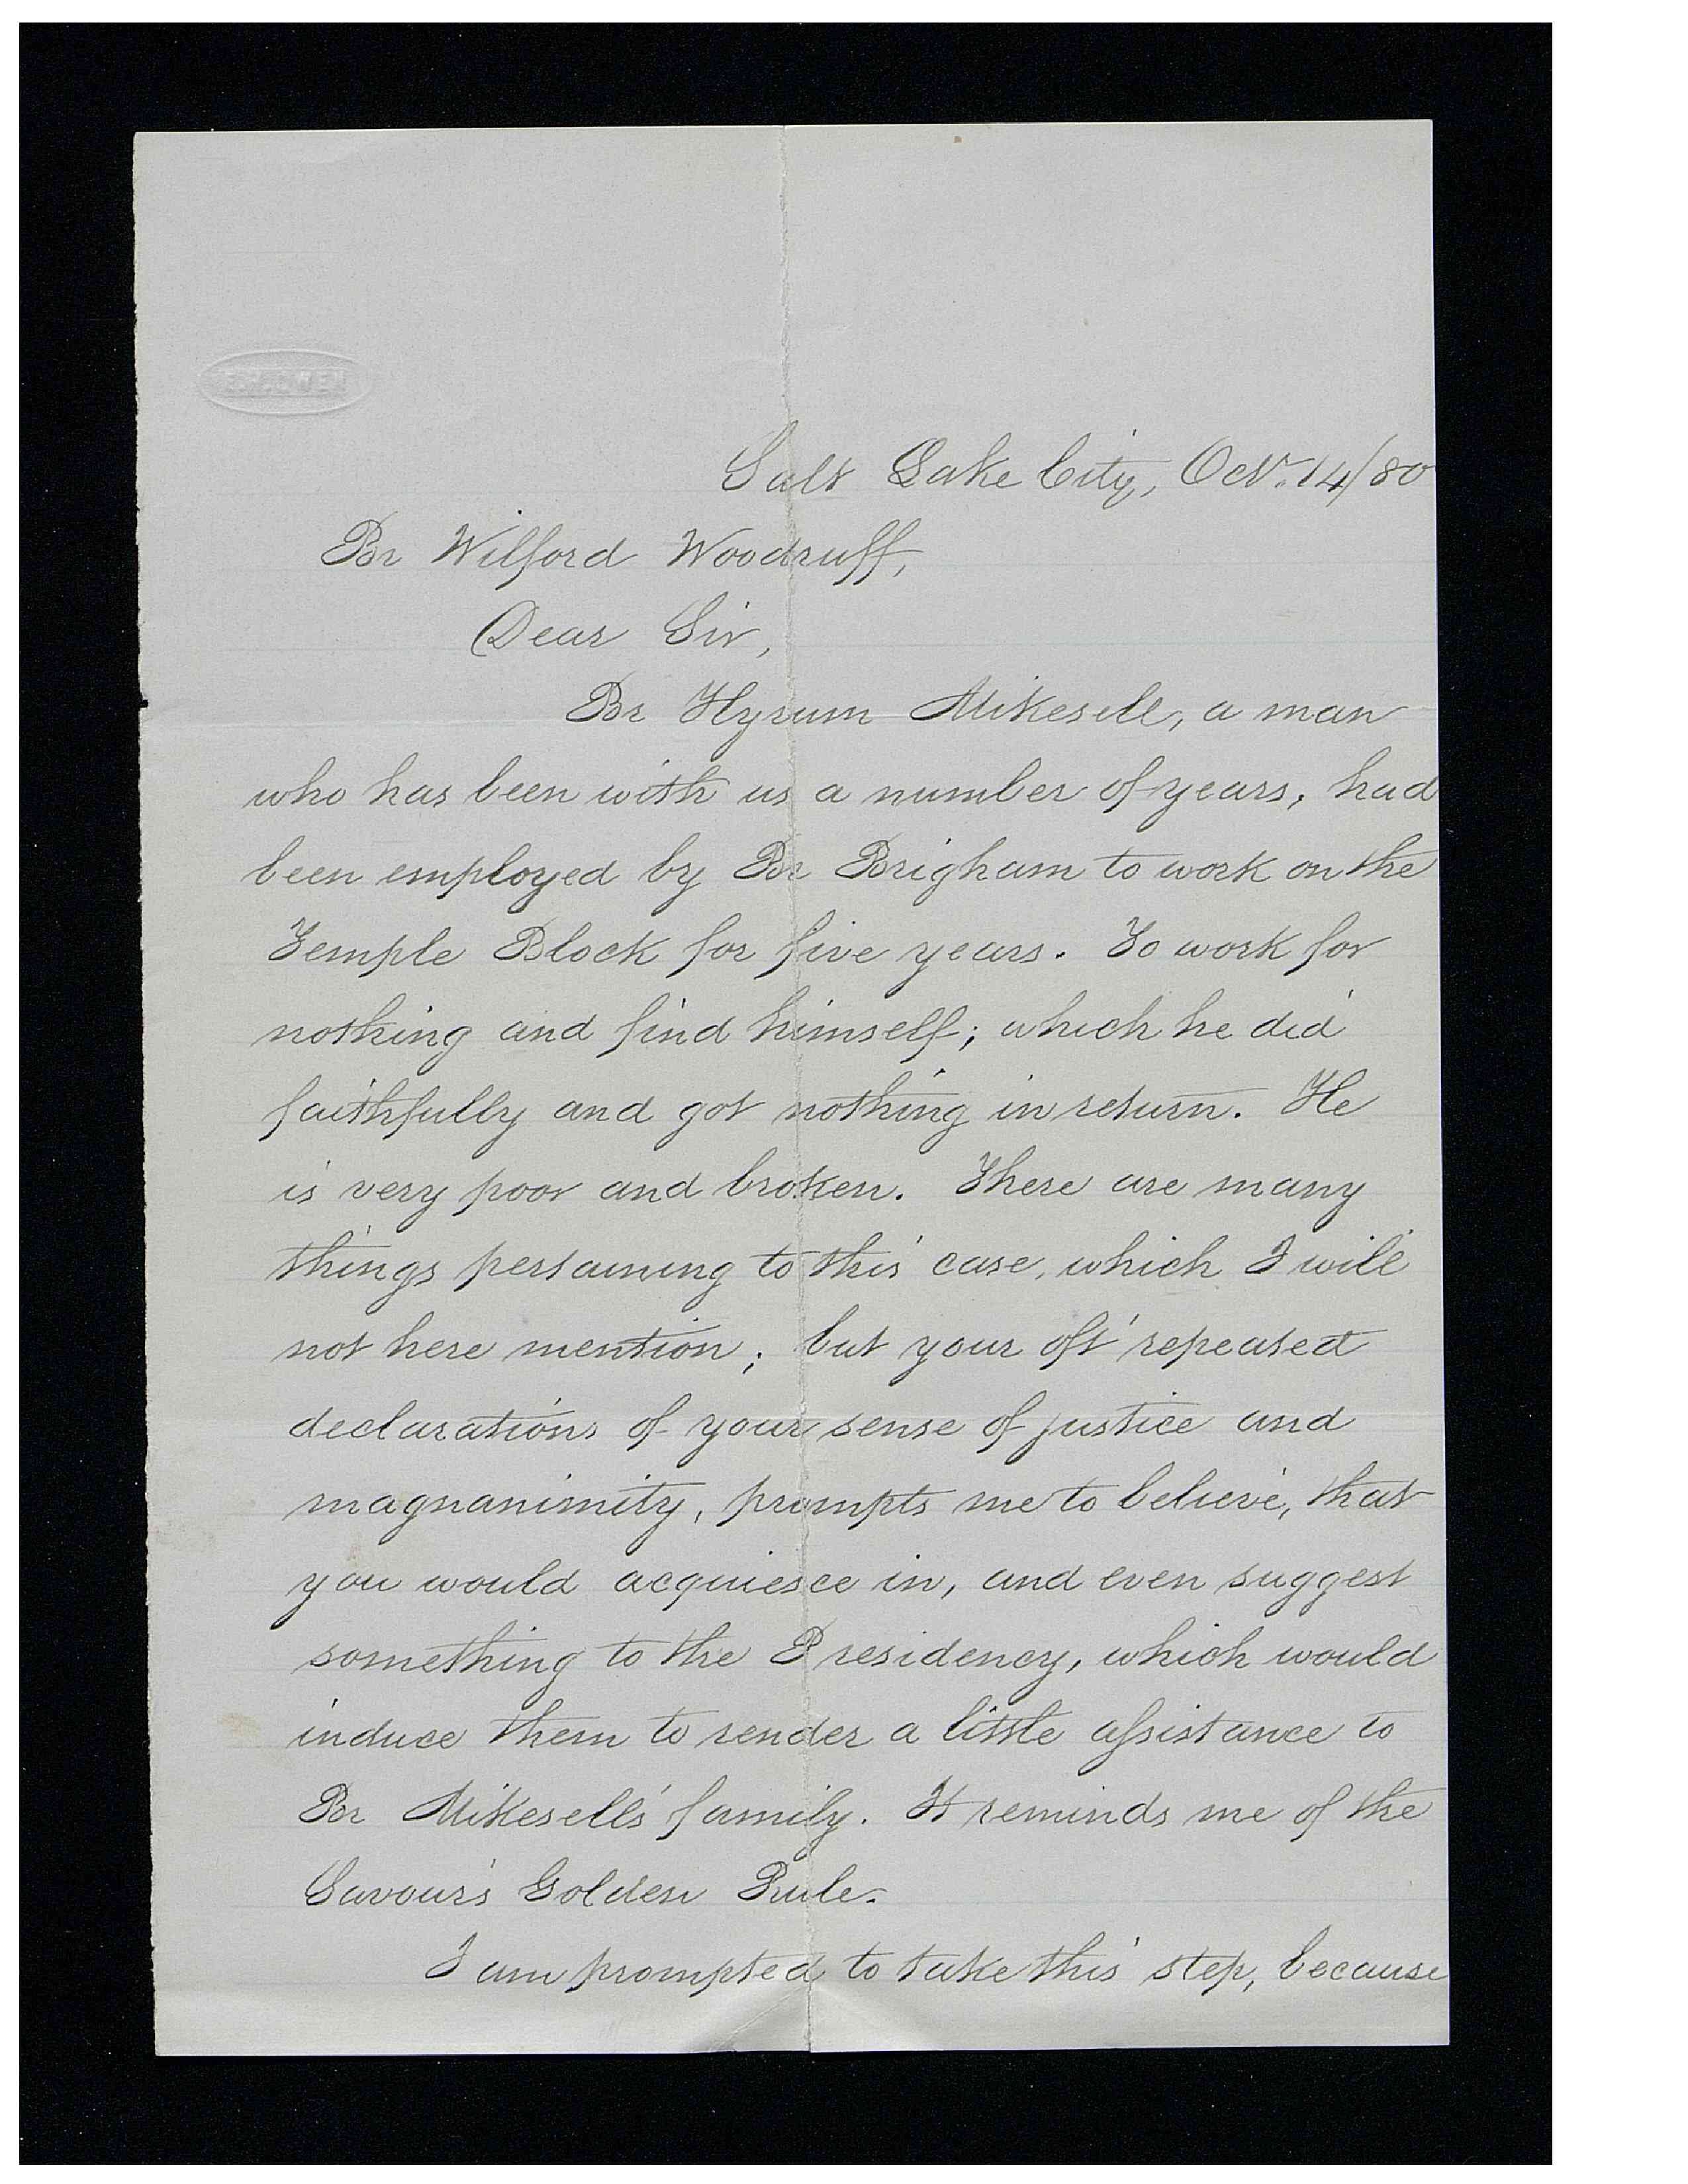 Salt Lake City, Oct. 14/80
Br Wilford Woodruff,
Dear Sir,
Br Hyrum Mikesell, a man
who has been with us a number of years, had
been employed by Br Brigham to work on the
Temple Block for five years. To work for
nothing and find himself; which he did
faithfully and got nothing in return. He
is very poor and broken. There are many
things pertaining to this case, which I will
not here mention; but your oft repeated
declarations of your sense of justice and
magnanimity, prompts me to believe, that
you would acquiesce in, and even suggest
something to the Presidency, which would
induce them to render a little assistance to
Br Mikesell's family. It reminds me of the
Savour's Golden Rule.
I am prompted to take this step, because